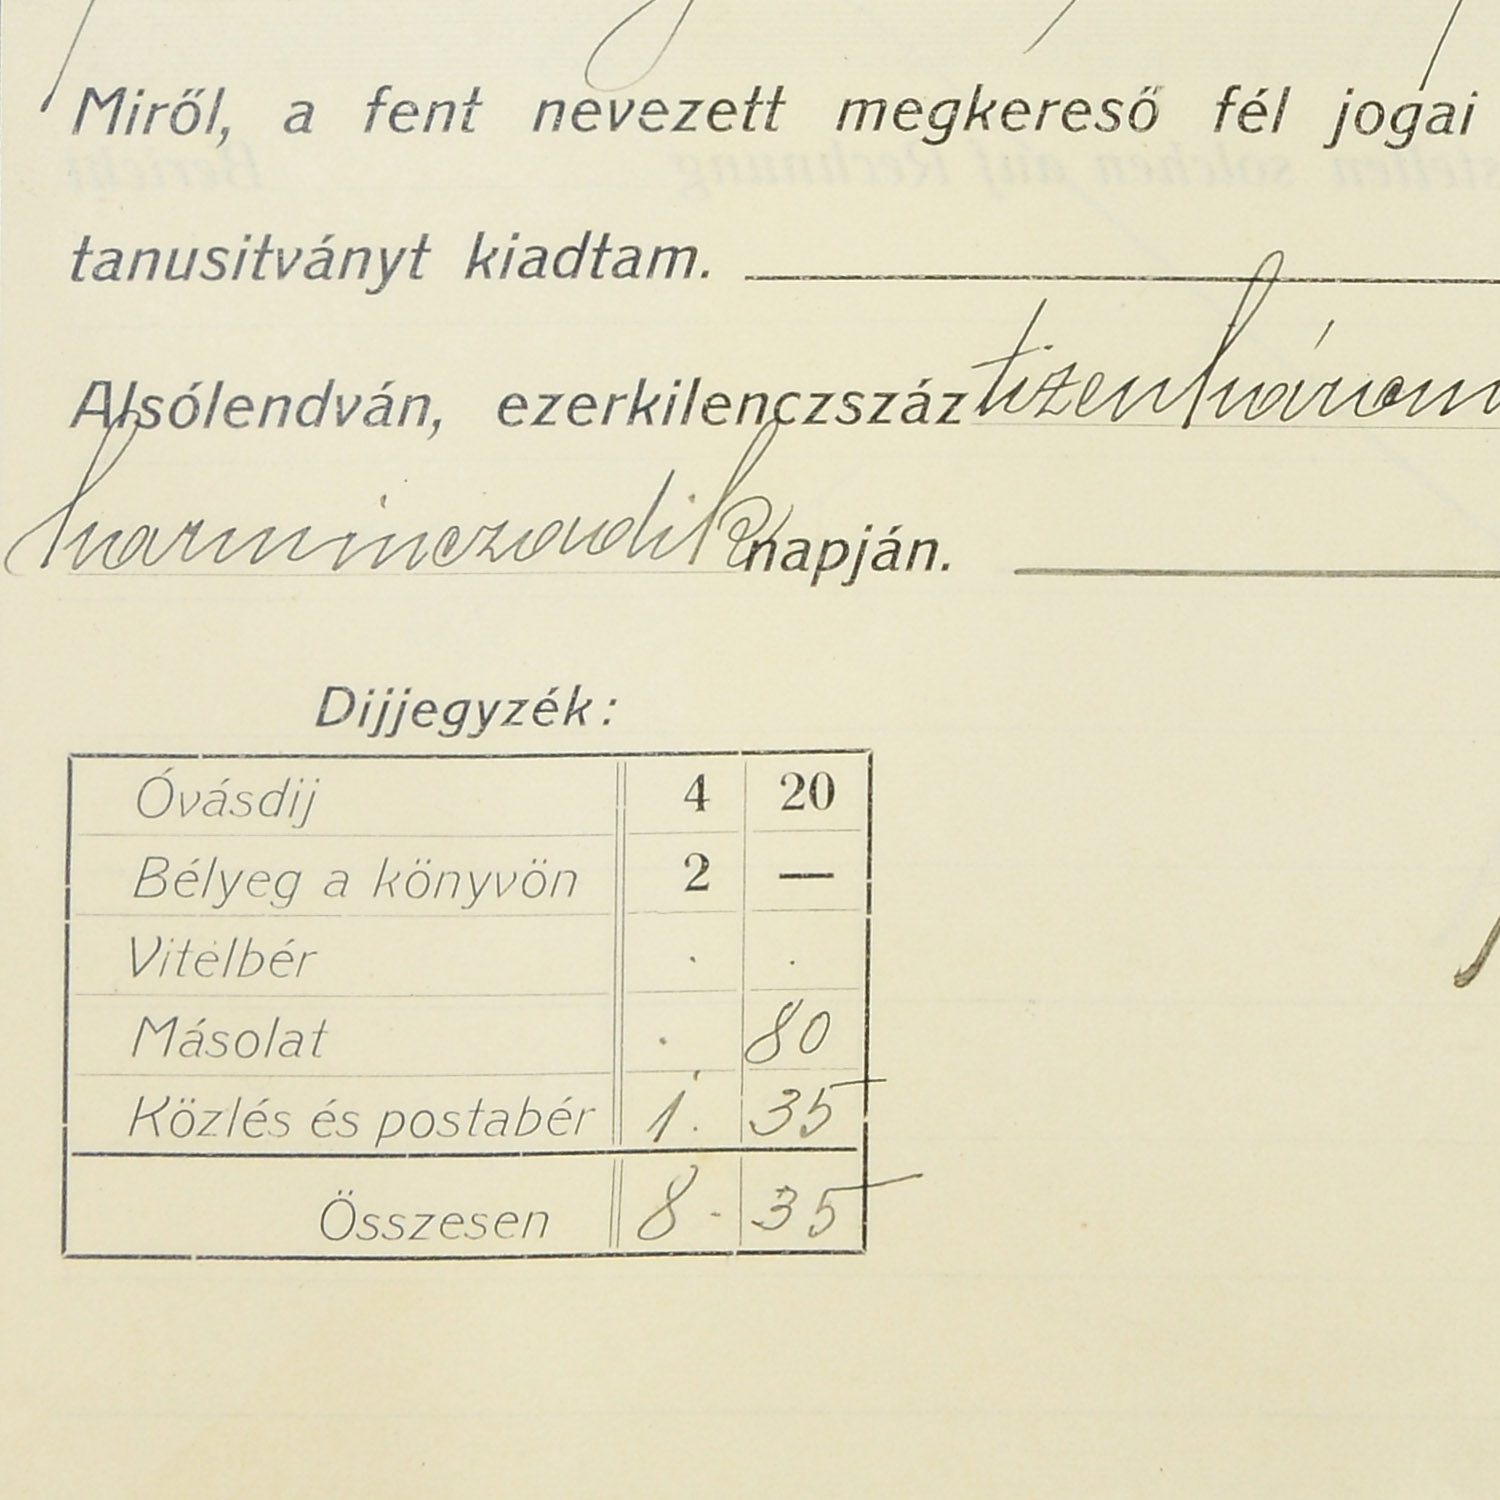 Miről, a fent nevezett megkereső fél jogai
tanusitványt kiadtam.
Alsólendván, ezerkilenczszáz tizenhárom
harminczadik napján.
Dijjegyzék:
Óvásdij 4 20
Bélyeg a könyvön 2 —
Vitelbér . .
Másolat . 80
Közlés és postabér 1. 35
Összesen 8 - 35